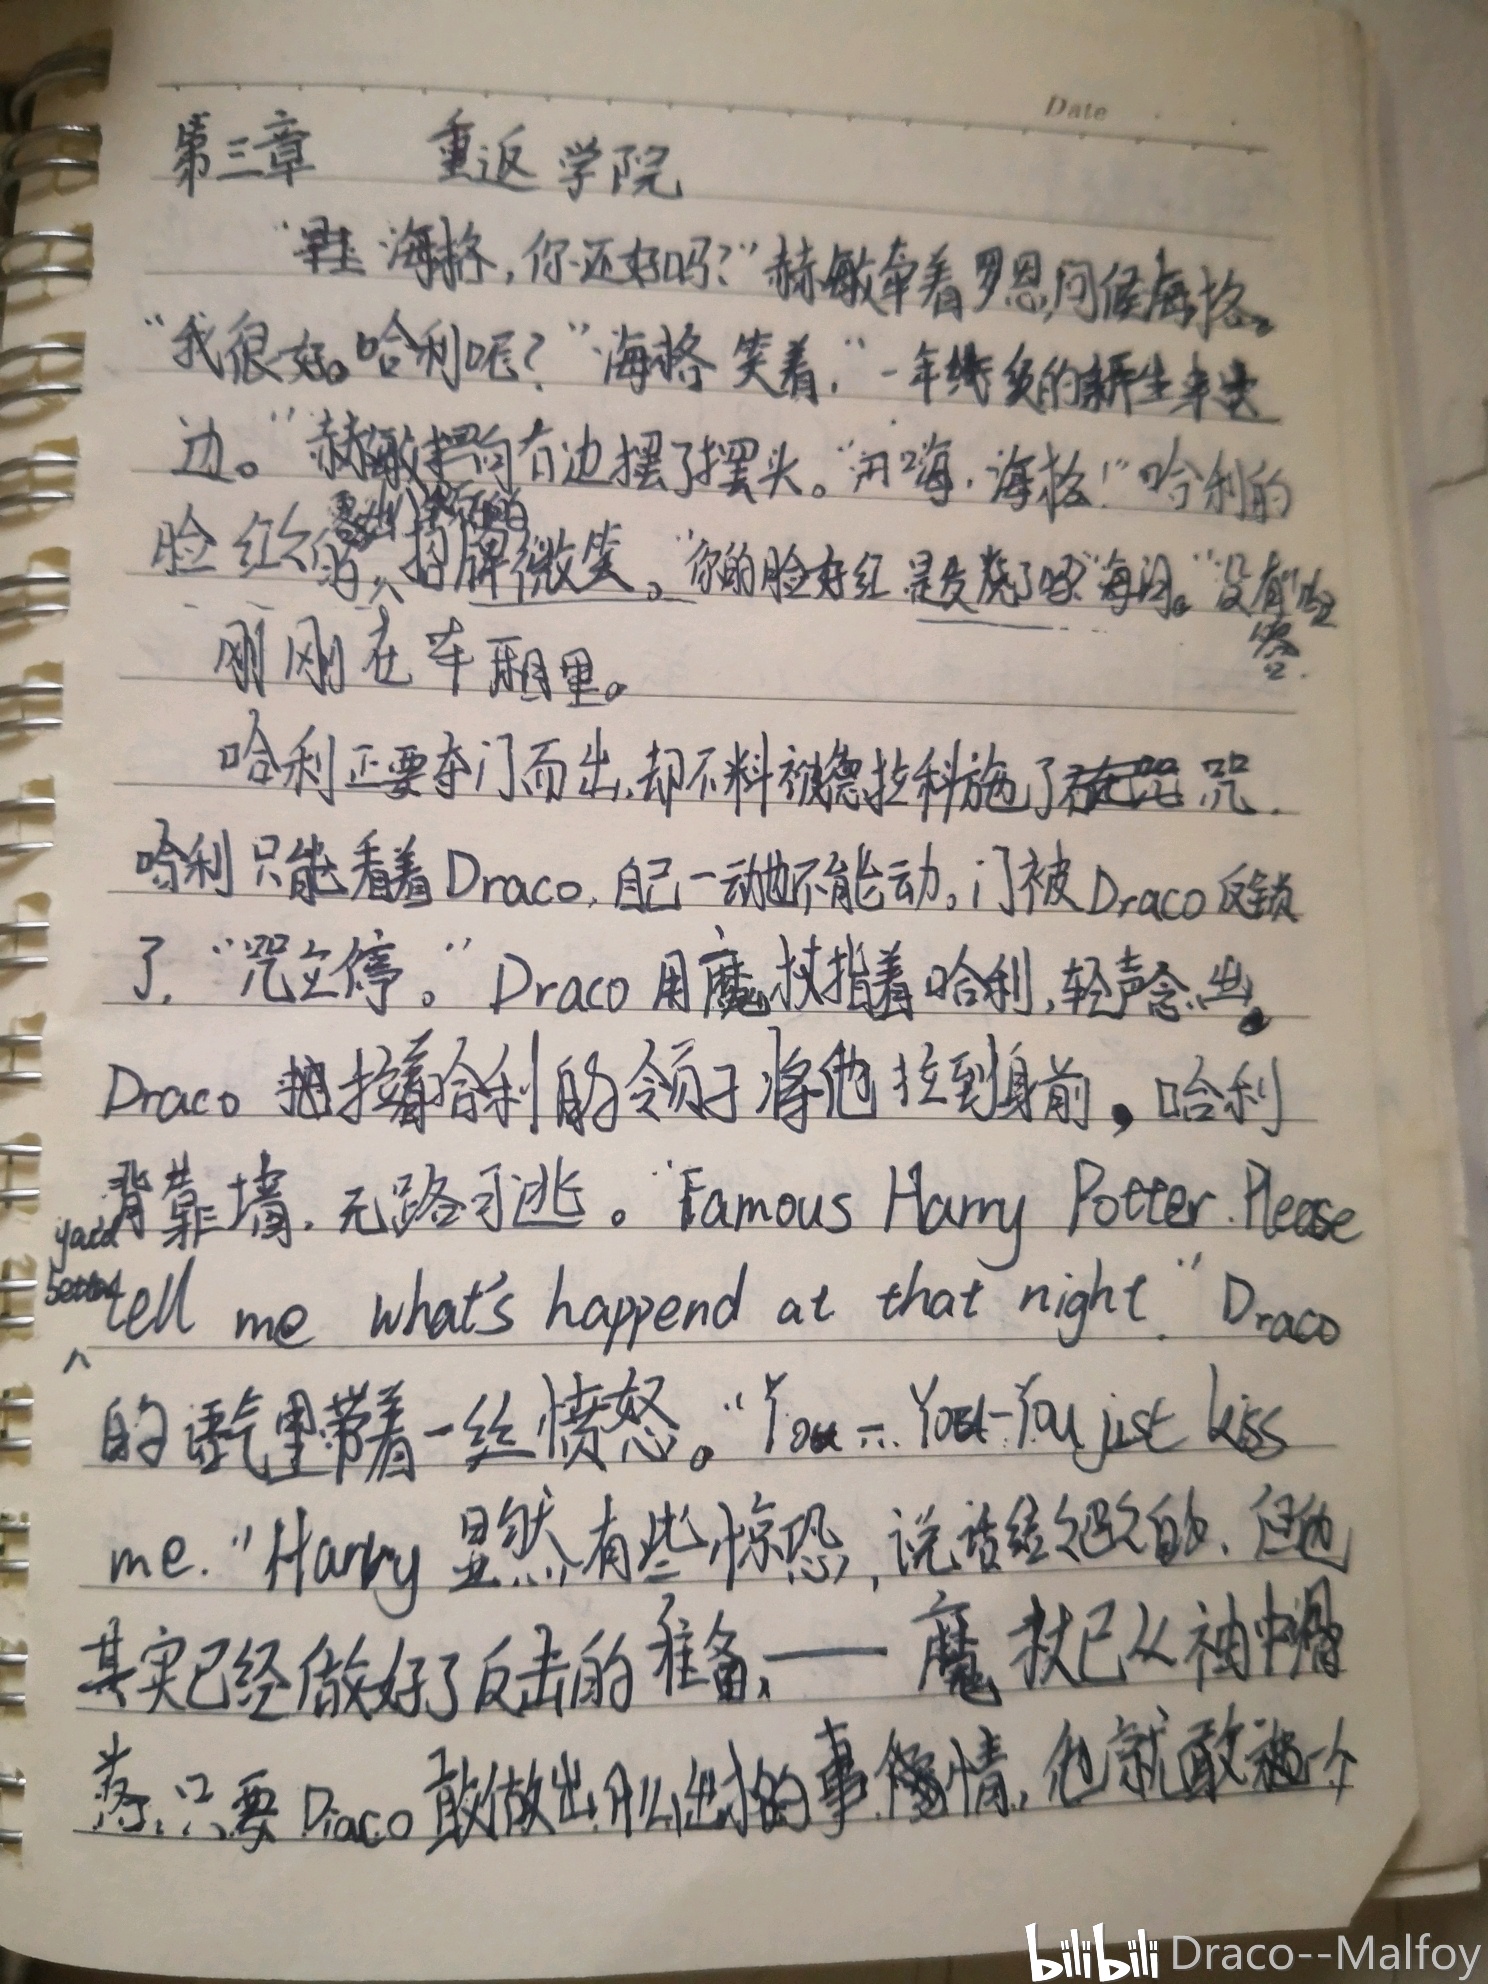 Date
第三章 重返学院
"海格,你还好吗?"赫敏牵着罗恩,问候海格。
"我很好。哈利呢?"海格笑着,"一年级的新生来这
边。"赫敏向右边摆了摆头。"嗨,海格!"哈利的
露出
脸红红的,招牌微笑。"你的脸好红是发烧了吗?"海格。"没有"哈
答.
刚刚在车厢里。
哈利正要夺门而出,却不料被德拉科施了咒.
哈利只能看着Draco,自己一动也不能动。门被Draco反锁
了,"咒立停。"Draco用魔杖指着哈利,轻声念出。
Draco拉着哈利的领子将他拉到身前,哈利
背靠墙,无路可逃。"Famous Harry Potter.Please
tell me what's happend at that night."Draco
的语气里带着一丝愤怒。"You—You—You just kiss
me."Harry显然有些惊恐,说话结结巴巴的,但他
其实已经做好了反击的准备,——魔杖已从袖中滑
落,只要Draco敢做出什么出格的事情,他就敢一个
bilibili Draco--Malfoy